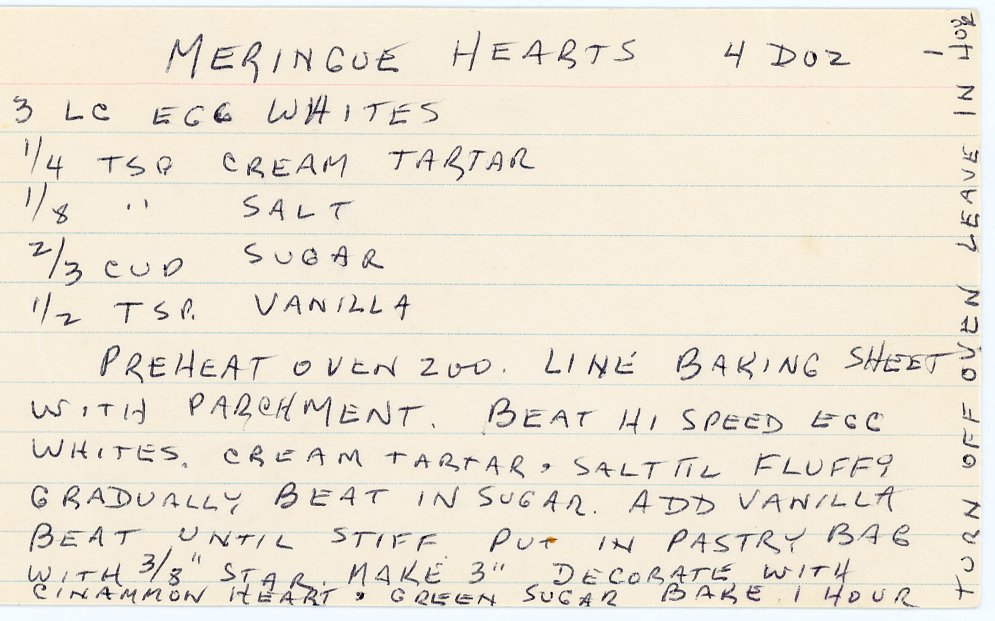 MERINGUE HEARTS 4 DOZ
3 LG EGG WHITES
1/4 TSP CREAM TARTAR
1/8 " SALT
2/3 CUP SUGAR
1/2 TSP. VANILLA
PREHEAT OVEN 200. LINE BAKING SHEET
WITH PARCHMENT. BEAT HI SPEED EGG
WHITES, CREAM TARTAR, SALT TIL FLUFFY
GRADUALLY BEAT IN SUGAR. ADD VANILLA
BEAT UNTIL STIFF. PUT IN PASTRY BAG
WITH 3/8" STAR. MAKE 3" DECORATE WITH
CINAMMON HEART, GREEN SUGAR BAKE 1 HOUR
TURN OFF OVEN LEAVE IN 1 HOUR